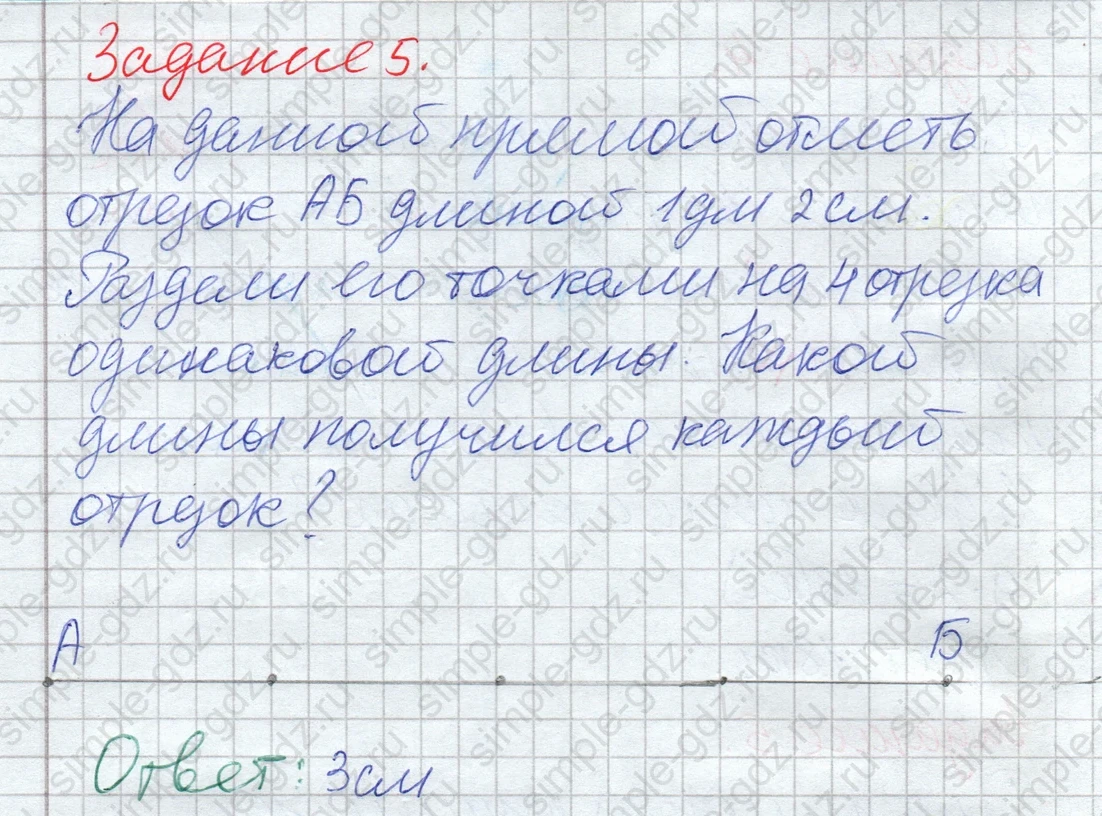 Задание 5.
На данной прямой отметь
отрезок АБ длиной 1дм 2см.
Раздели его точками на 4 отрезка
одинаковой длины. Какой
длины получился каждый
отрезок?
А Б
Ответ: 3см
simple-gdz.ru